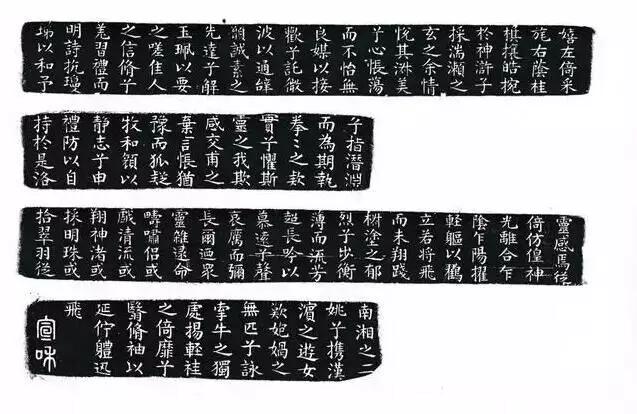 嬉左倚采
旄右蔭桂
旗攘皓捥
於神滸兮
採湍瀨之
玄之余情
悅其淑美
兮心悵蕩
而不怡無
良媒以接
歡兮託微
波以通辭
願誠素之
先達兮解
玉珮以要
之嗟佳人
之信脩兮
羌習禮而
明詩抗瓊
珶以和予
兮指潛淵
而為期執
拳〻之款
實兮懼斯
靈之我欺
感交甫之
棄言悵猶
豫而狐疑
收和顏以
靜志兮申
禮防以自
持於是洛
靈感焉徙
倚仿偟神
光離合乍
陰乍陽擢
輕軀以鶴
立若將飛
而未翔踐
椒塗之郁
烈兮步衡
薄而流芳
超長吟以
慕遠兮聲
哀厲而彌
長爾迺眾
靈雜遝命
疇嘯侶或
戲清流或
翔神渚或
採明珠或
拾翠羽從
南湘之二
姚兮攜漢
濱之遊女
歎媧之
無匹兮詠
牽牛之獨
處揚輕袿
之倚靡兮
翳脩袖以
延佇體迅
飛
宣和